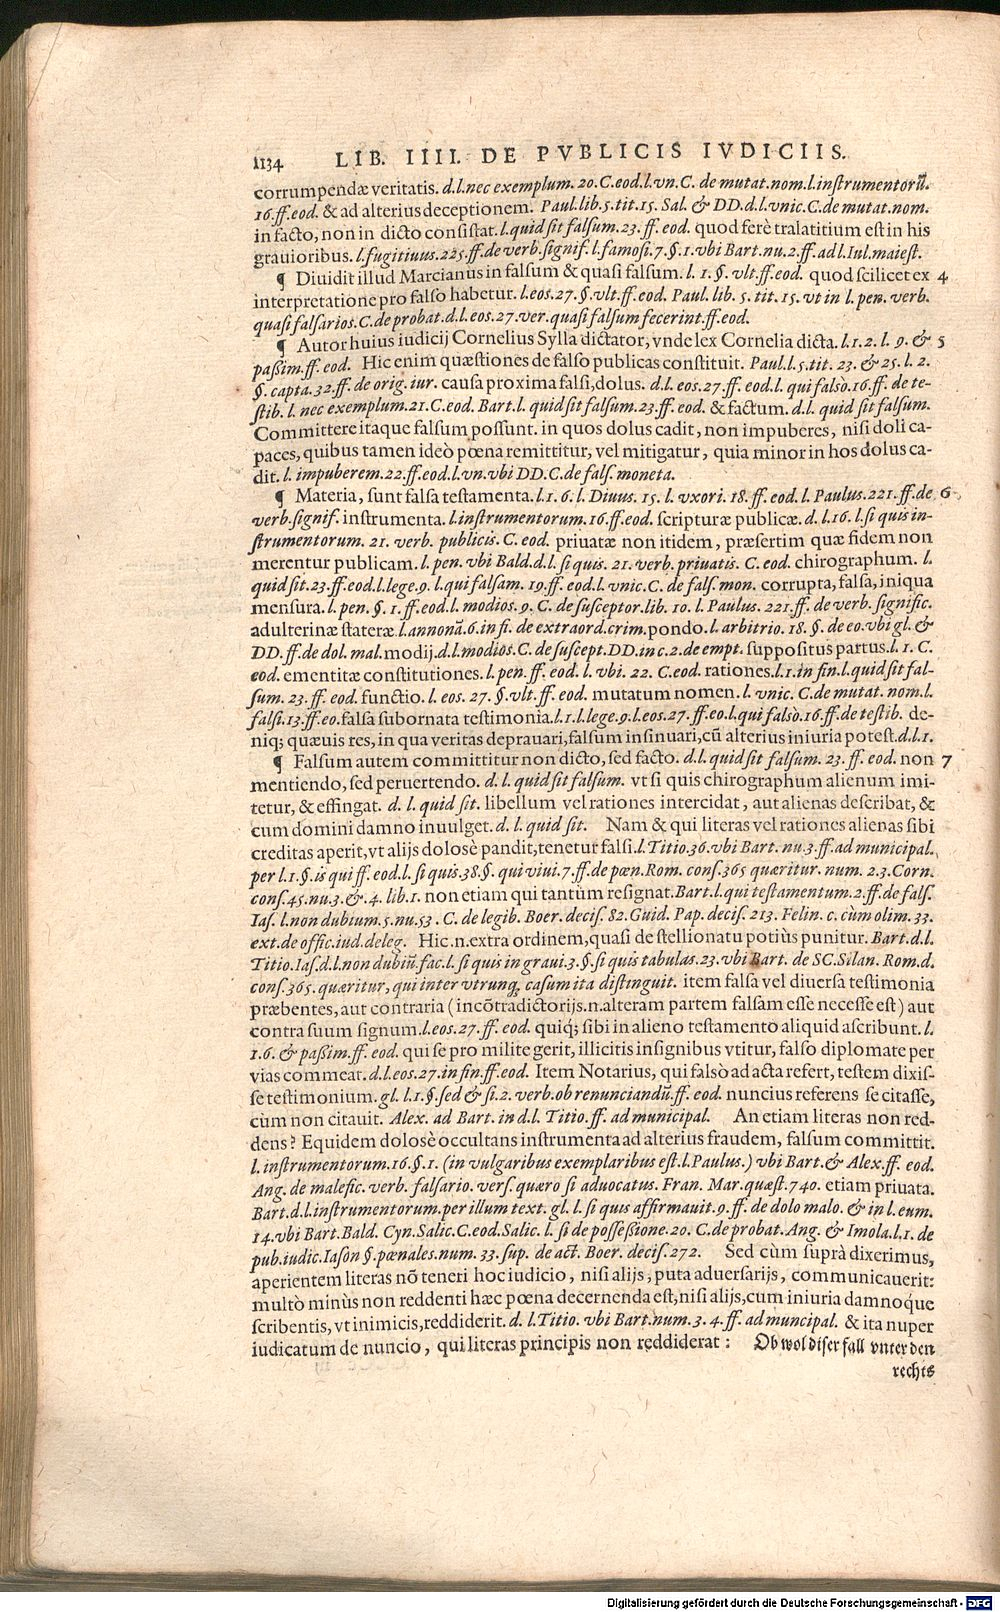 1134 LIB. IIII. DE PVBLICIS IVDICIIS.
corrumpendæ veritatis. d.l.nec exemplum. 20.C.eod.l.vn.C. de mutat.nom.l.instrumentorũ.
16.ff.eod. & ad alterius deceptionem. Paul.lib.5.tit.15. Sal. & DD.d.l.vnic.C.de mutat.nom.
in facto, non in dicto consistat. l.quid sit falsum.23.ff. eod. quod ferè tralatitium est in his
grauioribus. l.fugitiuus.225.ff.de verb.signif.l.famosi.7.§.1.vbi Bart.nu.2.ff.ad l.Iul.maiest.
¶ Diuidit illud Marcianus in falsum & quasi falsum. l. 1. §. vlt.ff.eod. quod scilicet ex 4
interpretatione pro falso habetur. l.eos.27.§.vlt.ff.eod. Paul. lib. 5. tit. 15. vt in l. pen. verb.
quasi falsarios.C.de probat.d.l. eos.27.ver.quasi falsum fecerint.ff.eod.
¶ Autor huius iudicij Cornelius Sylla dictator, vnde lex Cornelia dicta. l.1.2. l. 9. & 5
paßim.ff. eod. Hic enim quæstiones de falso publicas constituit. Paul.l.5.tit. 23. & 25. l. 2.
§. capta. 32.ff. de orig. iur. causa proxima falsi, dolus. d.l. eos.27.ff. eod.l. qui falsò.16.ff. de te-
stib. l. nec exemplum.21.C.eod. Bart.l. quid sit falsum.23.ff. eod. & factum. d.l. quid sit falsum.
Committere itaque falsum possunt. in quos dolus cadit, non impuberes, nisi doli ca-
paces, quibus tamen ideò pœna remittitur, vel mitigatur, quia minor in hos dolus ca-
dit. l. impuberem.22.ff.eod.l.vn.vbi DD.C.de fals. moneta.
¶ Materia, sunt falsa testamenta. l.1. 6. l. Diuus. 15. l. vxori. 18. ff. eod. l. Paulus.221. ff.de 6
verb.signif. instrumenta. l.instrumentorum.16.ff.eod. scripturæ publicæ. d. l.16. l.si quis in-
strumentorum. 21. verb. publicis. C. eod. priuatæ non itidem, præsertim quæ fidem non
merentur publicam. l. pen. vbi Bald.d.l. si quis. 21. verb. priuatis. C. eod. chirographum. l.
quid sit.23.ff.eod.l.lege.9. l.qui falsam. 19.ff.eod.l.vnic.C. de fals. mon. corrupta, falsa, iniqua
mensura. l. pen. §. 1.ff.eod.l. modios.9. C. de susceptor.lib. 10. l. Paulus. 221.ff. de verb. signific.
adulterinæ stateræ. l.annonã.6.in fi. de extraord.crim. pondo. l. arbitrio. 18. §. de eo.vbi gl. &
DD.ff.de dol. mal. modij. d.l.modios.C. de suscept.DD.in c.2.de empt. suppositus partus. l. 1. C.
eod. ementitæ constitutiones. l. pen.ff. eod. l. vbi. 22. C.eod. rationes. l.1.in fin.l.quid sit fal-
sum. 23. ff. eod. functio. l. eos. 27. §.vlt.ff. eod. mutatum nomen. l. vnic. C.de mutat. nom.l.
falsi.13.ff.eo. falsa subornata testimonia. l.1.l.lege.9.l.eos.27.ff.eo.l.qui falsò.16.ff.de testib. de-
niq; quæuis res, in qua veritas deprauari, falsum insinuari, cũ alterius iniuria potest. d.l.1.
¶ Falsum autem committitur non dicto, sed facto. d.l. quid sit falsum. 23. ff. eod. non 7
mentiendo, sed peruertendo. d. l. quid sit falsum. vt si quis chirographum alienum imi-
tetur, & effingat. d. l. quid sit. libellum vel rationes intercidat, aut alienas describat, &
cum domini damno inuulget. d. l. quid sit. Nam & qui literas vel rationes alienas sibi
creditas aperit, vt alijs dolosè pandit, tenetur falsi. l.Titio.36.vbi Bart. nu.3.ff.ad municipal.
per l.1.§.is qui ff.eod.l. si quis.38.§. qui viui.7.ff.de pœn.Rom. cons.365 quæritur. num. 2.3.Corn.
cons.45.nu.3.&.4. lib.1. non etiam qui tantùm resignat. Bart.l.qui testamentum.2.ff.de fals.
Ias. l.non dubium.5.nu.53. C. de legib. Boer. decis. 82.Guid. Pap. decis. 213. Felin. c. cùm olim. 33.
ext.de offic.iud.deleg. Hic.n.extra ordinem, quasi de stellionatu potiùs punitur. Bart.d.l.
Titio.Ias.d.l.non dubiũ.fac.l. si quis in graui.3.§.si quis tabulas.23.vbi Bart. de SC.Silan. Rom.d.
cons.365.quæritur, qui inter vtrunq; casum ita distinguit. item falsa vel diuersa testimonia
præbentes, aut contraria (incõtradictorijs.n.alteram partem falsam esse necesse est) aut
contra suum signum. l.eos.27.ff. eod. quiq; sibi in alieno testamento aliquid ascribunt. l.
1.6. & paßim.ff. eod. qui se pro milite gerit, illicitis insignibus vtitur, falso diplomate per
vias commeat. d.l.eos.27.in fin.ff.eod. Item Notarius, qui falsò ad acta refert, testem dixis-
se testimonium. gl. l.1.§.sed & si.2. verb.ob renunciandũ.ff. eod. nuncius referens se citasse,
cùm non citauit. Alex. ad Bart. in d.l. Titio.ff. ad municipal. An etiam literas non red-
dens? Equidem dolosè occultans instrumenta ad alterius fraudem, falsum committit.
l. instrumentorum.16.§.1. (in vulgaribus exemplaribus est.l.Paulus.) vbi Bart.& Alex.ff. eod.
Ang. de malefic. verb. falsario. vers. quæro si aduocatus. Fran. Mar.quæst.740. etiam priuata.
Bart.d.l.instrumentorum.per illum text. gl. l. si quis affirmauit.9. ff. de dolo malo. & in l. eum.
14.vbi Bart.Bald. Cyn.Salic.C.eod.Salic. l. si de posseßione.20. C.de probat.Ang. & Imola.l.1. de
pub.iudic.Iason §.pœnales.num. 33. sup. de act. Boer. decis. 272. Sed cùm suprà dixerimus,
aperientem literas nõ teneri hoc iudicio, nisi alijs, puta aduersarijs, communicauerit:
multò minùs non reddenti hæc pœna decernenda est, nisi alijs, cum iniuria damnoque
scribentis, vt inimicis, reddiderit. d. l.Titio. vbi Bart.num. 3. 4. ff. ad muncipal. & ita nuper
iudicatum de nuncio, qui literas principis non reddiderat: Ob wol diser fall vnter den
rechts
Digitalisierung gefördert durch die Deutsche Forschungsgemeinschaft - DFG